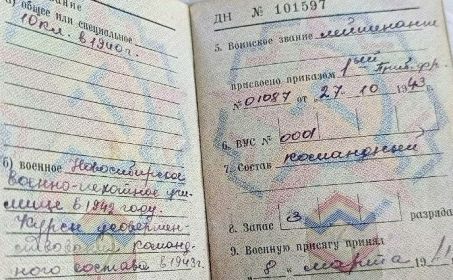 а) общее или специальное
10 кл. в 1940 г.
б) военное Новосибирское
военно-пехотное учи-
лище в 1942 году.
Курсы усовершен-
ствования команд-
ного состава в 1943 г.
ДН № 101597
5. Воинское звание лейтенант
присвоено приказом 1ый Приб. фр.
№ 01087 от „27. 10 1943 г.
6. ВУС № 0001
7. Состав командный
8. Запас 3 разряда
9. Военную присягу принял
„8 марта 19